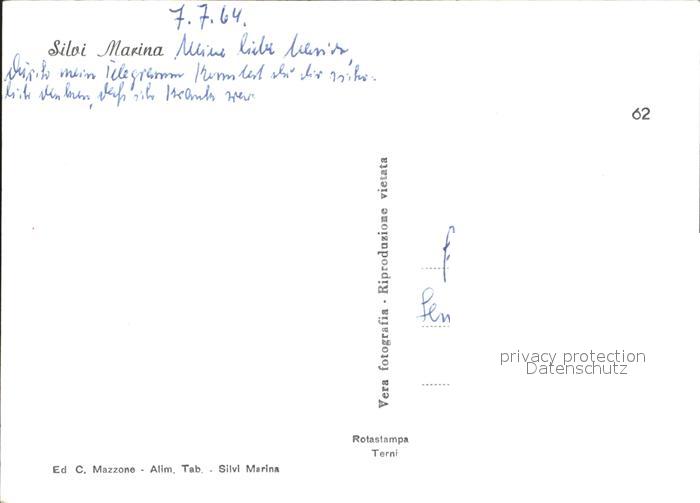 7.7.64.
Silvi Marina Meine liebe
Durch mein Telegramm konntest du dir sicher-
lich denken, daß ich krank war.
62
Vera fotografia - Riproduzione vietata
privacy protection
Datenschutz
Rotastampa
Terni
Ed C. Mazzone - Alim. Tab. - Silvi Marina